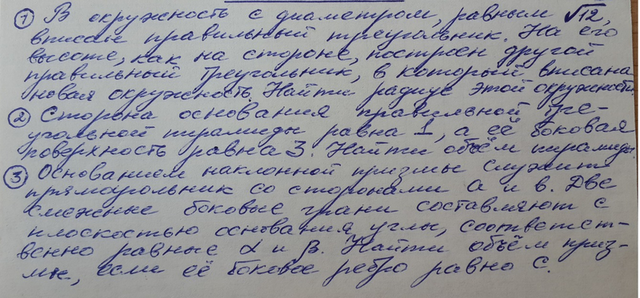 ① В окружность с диаметром, равным √12,
вписан правильный треугольник. На его
высоте, как на стороне, построен другой
правильный треугольник, в который вписана
новая окружность. Найти радиус этой окружности.
② Сторона основания правильной тре-
угольной пирамиды равна 1, а её боковая
поверхность равна 3. Найти объём пирамиды
③ Основанием наклонной призмы служит
прямоугольник со сторонами а и в. Две
смежные боковые грани составляют с
плоскостью основания углы, соответст-
венно равные α и β. Найти объём приз-
мы, если её боковое ребро равно с.